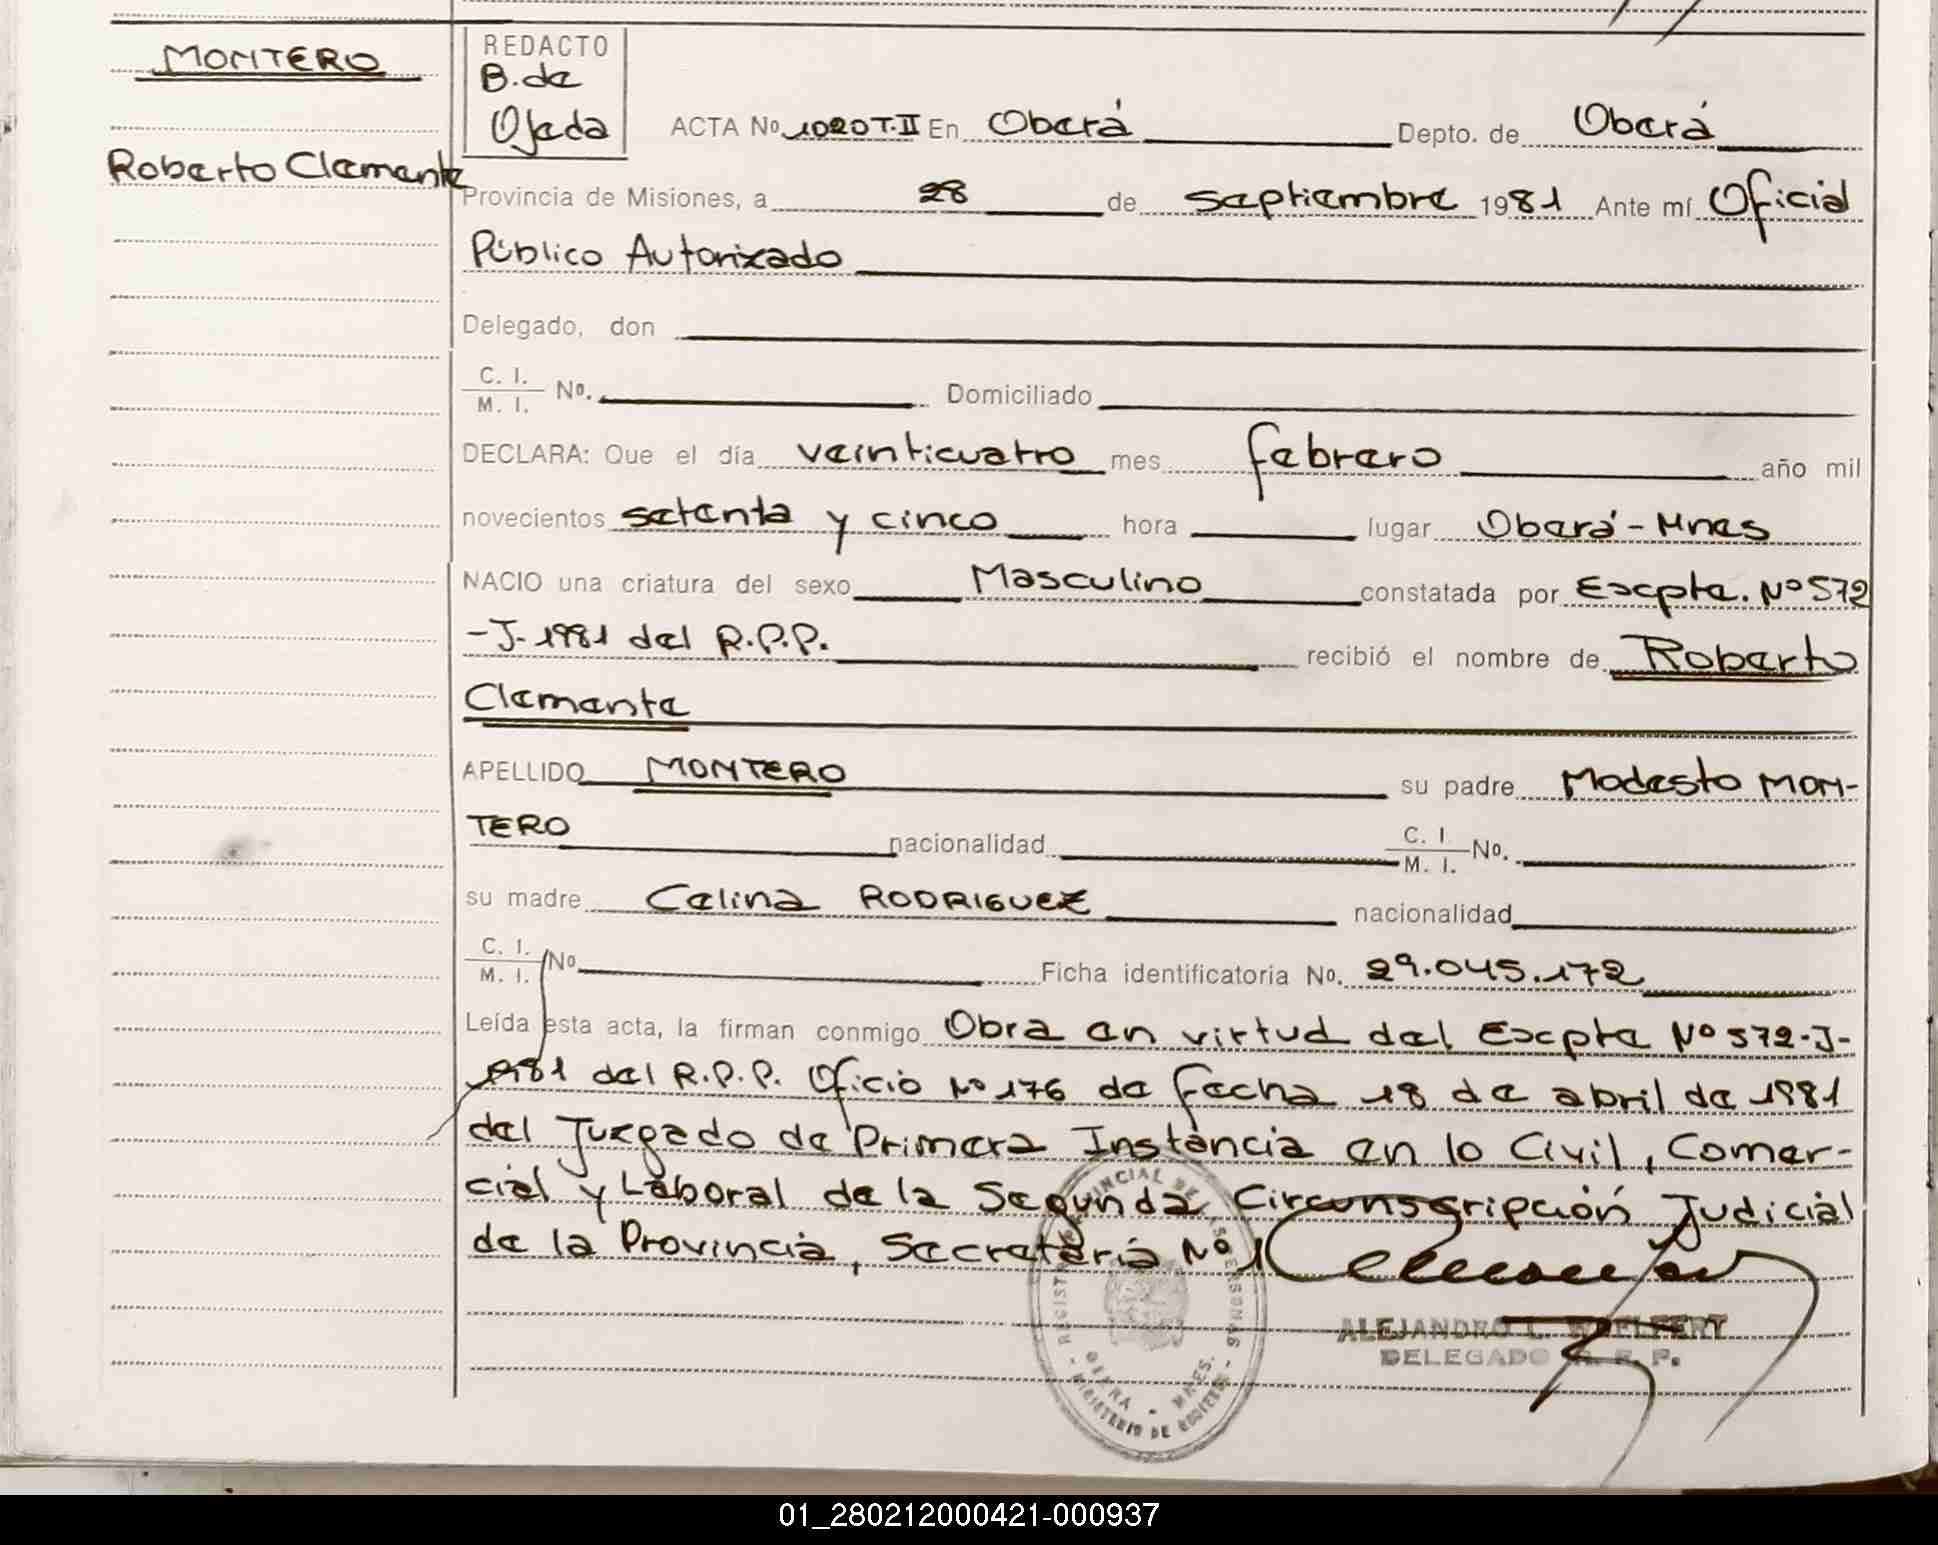 MONTERO
Roberto Clemente
REDACTO
B. de
Ojeda
ACTA No. 1020 T.II En Oberá Depto. de Oberá
Provincia de Misiones, a 28 de septiembre 1981 Ante mí Oficial
Público Autorizado
Delegado, don
C. I.
M. I. No. Domiciliado
DECLARA: Que el día veinticuatro mes febrero año mil
novecientos setenta y cinco hora lugar Oberá-Mnes
NACIO una criatura del sexo Masculino constatada por Expte. Nº 572
-J-1981 del R.P.P. recibió el nombre de Roberto
Clemente
APELLIDO MONTERO su padre Modesto MON-
TERO nacionalidad C. I.
M. I. No.
su madre Celina RODRIGUEZ nacionalidad
C. I.
M. I. No Ficha identificatoria No. 29.045.172
Leída esta acta, la firman conmigo Obra en virtud del Expte Nº 572-J-
1981 del R.P.P. Oficio Nº 176 de fecha 18 de abril de 1981
del Juzgado de Primera Instancia en lo Civil, Comer-
cial y Laboral de la Segunda Circunscripción Judicial
de la Provincia, Secretaría Nº 1
ALEJANDRO L. WELFERT
DELEGADO R. P. P.
01_280212000421-000937